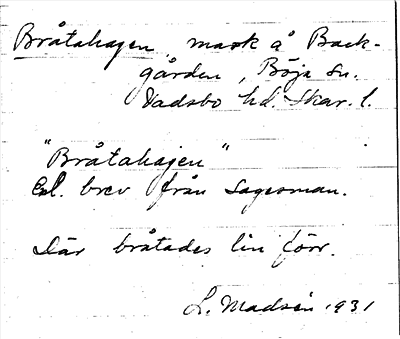 Bråtahagen, mark å Back-
gården, Böja sn.
Vadsbo hd. Skar. l.
"Bråtahagen"
Enl. brev från sagesman.
Där bråtades lin förr.
L. Madsén 1931